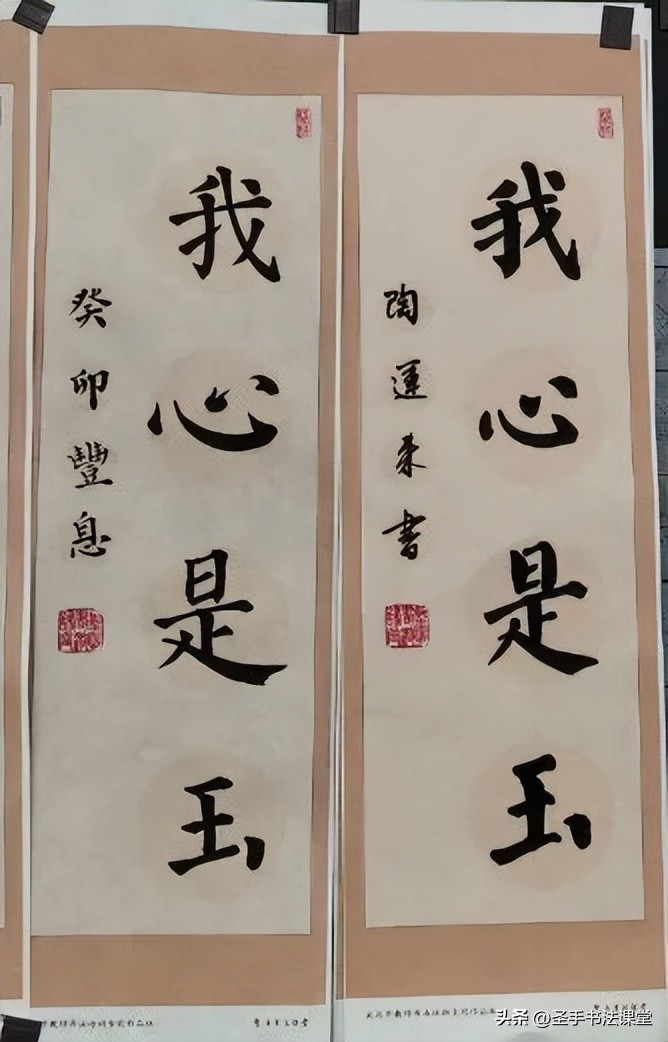 我心是玉
陶運来書
我心是玉
癸卯豐息
头条 @圣手书法课堂